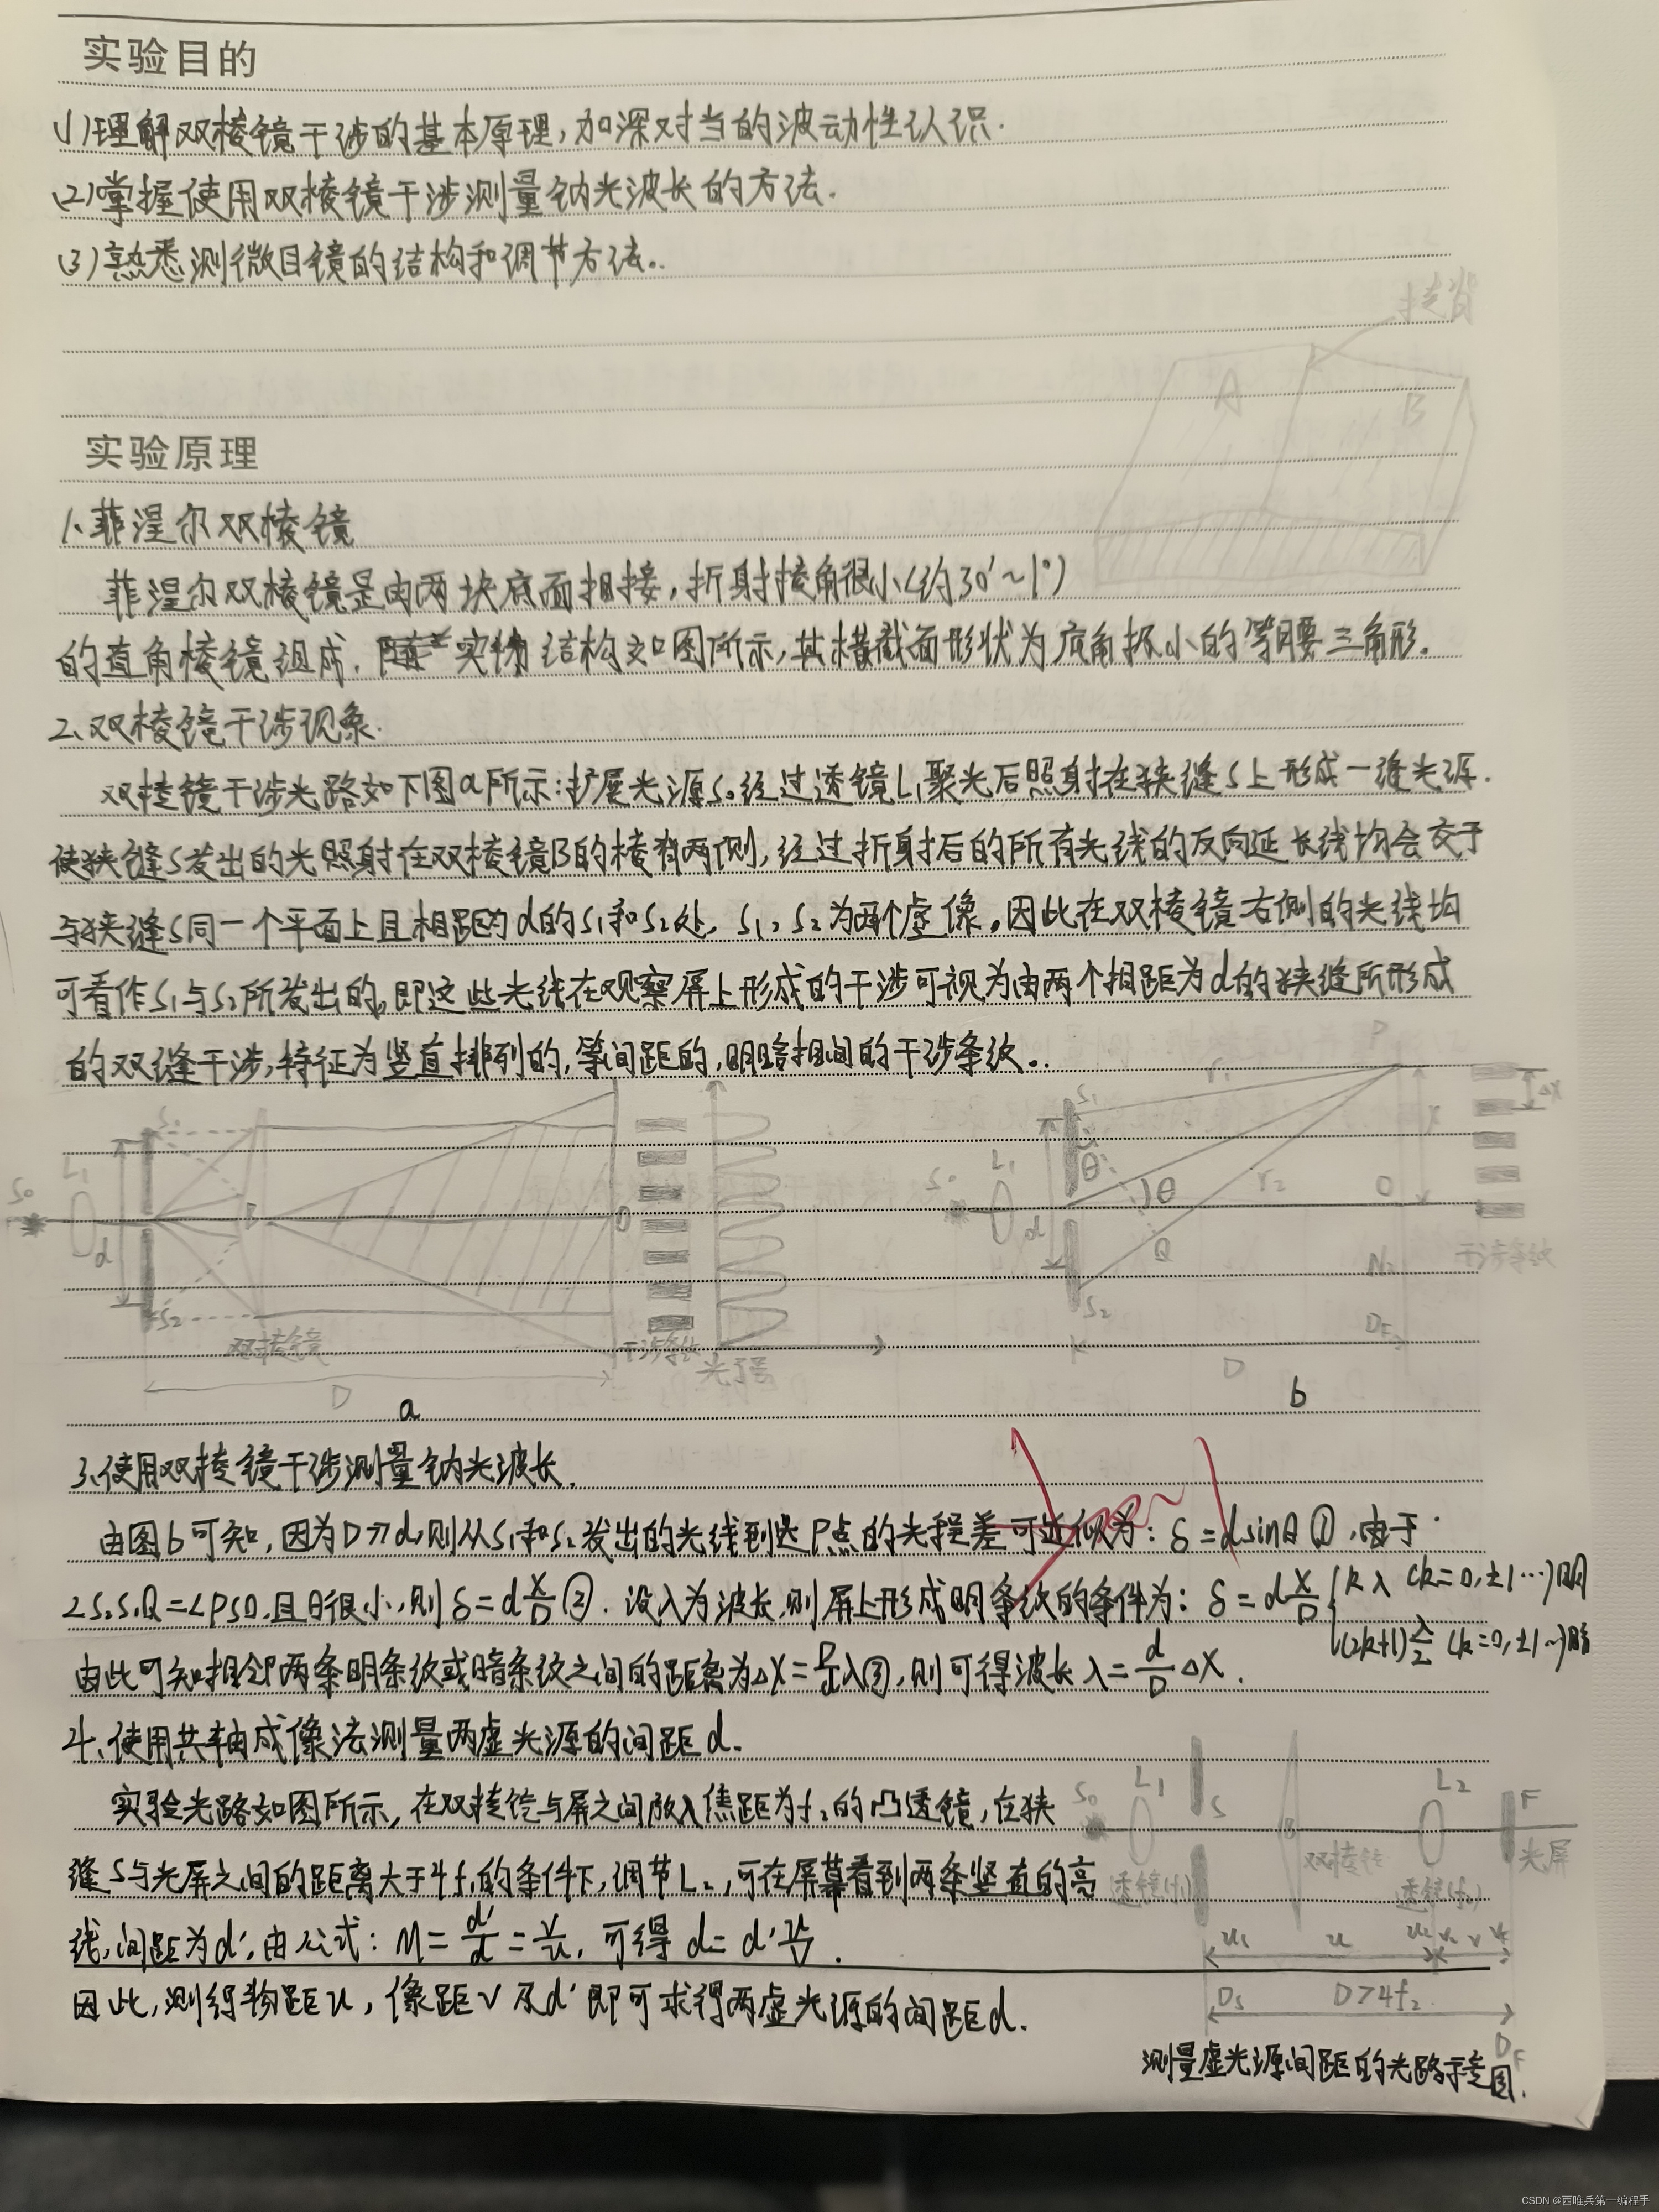 实验目的
(1)理解双棱镜干涉的基本原理,加深对当的波动性认识.
(2)掌握使用双棱镜干涉测量钠光波长的方法.
(3)熟悉测微目镜的结构和调节方法..
棱脊
A
B
实验原理
1.菲涅尔双棱镜
菲涅尔双棱镜是由两块底面相接,折射棱角很小(约30′~1°)
的直角棱镜组成. 实物结构如图所示,其横截面形状为底角极小的等腰三角形.
2.双棱镜干涉现象.
双棱镜干涉光路如下图a所示:扩展光源S₀经过透镜L₁聚光后照射在狭缝S上形成一缝光源.
使狭缝S发出的光照射在双棱镜B的棱脊两侧,经过折射后的所有光线的反向延长线均会交于
与狭缝S同一个平面上且相距为d的S₁和S₂处, S₁,S₂为两个虚像.因此在双棱镜右侧的光线均
可看作S₁与S₂所发出的,即这些光线在观察屏上形成的干涉可视为由两个相距为d的狭缝所形成
的双缝干涉,特征为竖直排列的,等间距的,明暗相间的干涉条纹..
S₀ L₁ d S₁ S₂ B 双棱镜 D 干涉条纹 光强
a
S₀ L₁ d S₁ S₂ θ θ Q r₁ r₂ P x O D Δx 干涉条纹
b
3.使用双棱镜干涉测量钠光波长.
由图b可知,因为D≫d,则从S₁和S₂发出的光线到达P点的光程差可近似为: δ=dsinθ ①,由于
∠S₂S₁Q=∠PSO,且θ很小,则 δ=d x/D ②. 设λ为波长,则屏上形成明条纹的条件为: δ=d x/D { kλ (k=0,±1…)明
(2k+1)λ/2 (k=0,±1…)暗
由此可知相邻两条明条纹或暗条纹之间的距离为Δx=D/d λ③,则可得波长 λ=d/D Δx.
4.使用共轴成像法测量两虚光源的间距d.
实验光路如图所示,在双棱镜与屏之间放入焦距为f₂的凸透镜,在狭
缝S与光屏之间的距离大于4f₂的条件下,调节L₂,可在屏幕看到两条竖直的亮
线,间距为d′,由公式: M=d′/d=v/u, 可得 d=d′u/v.
因此,测得物距u,像距v及d′即可求得两虚光源的间距d.
S₀ L₁ S B L₂ F
透镜(f₁) 双棱镜 透镜(f₂) 光屏
u v
D>4f₂
测量虚光源间距的光路示意图.
CSDN @西唯兵第一编程手